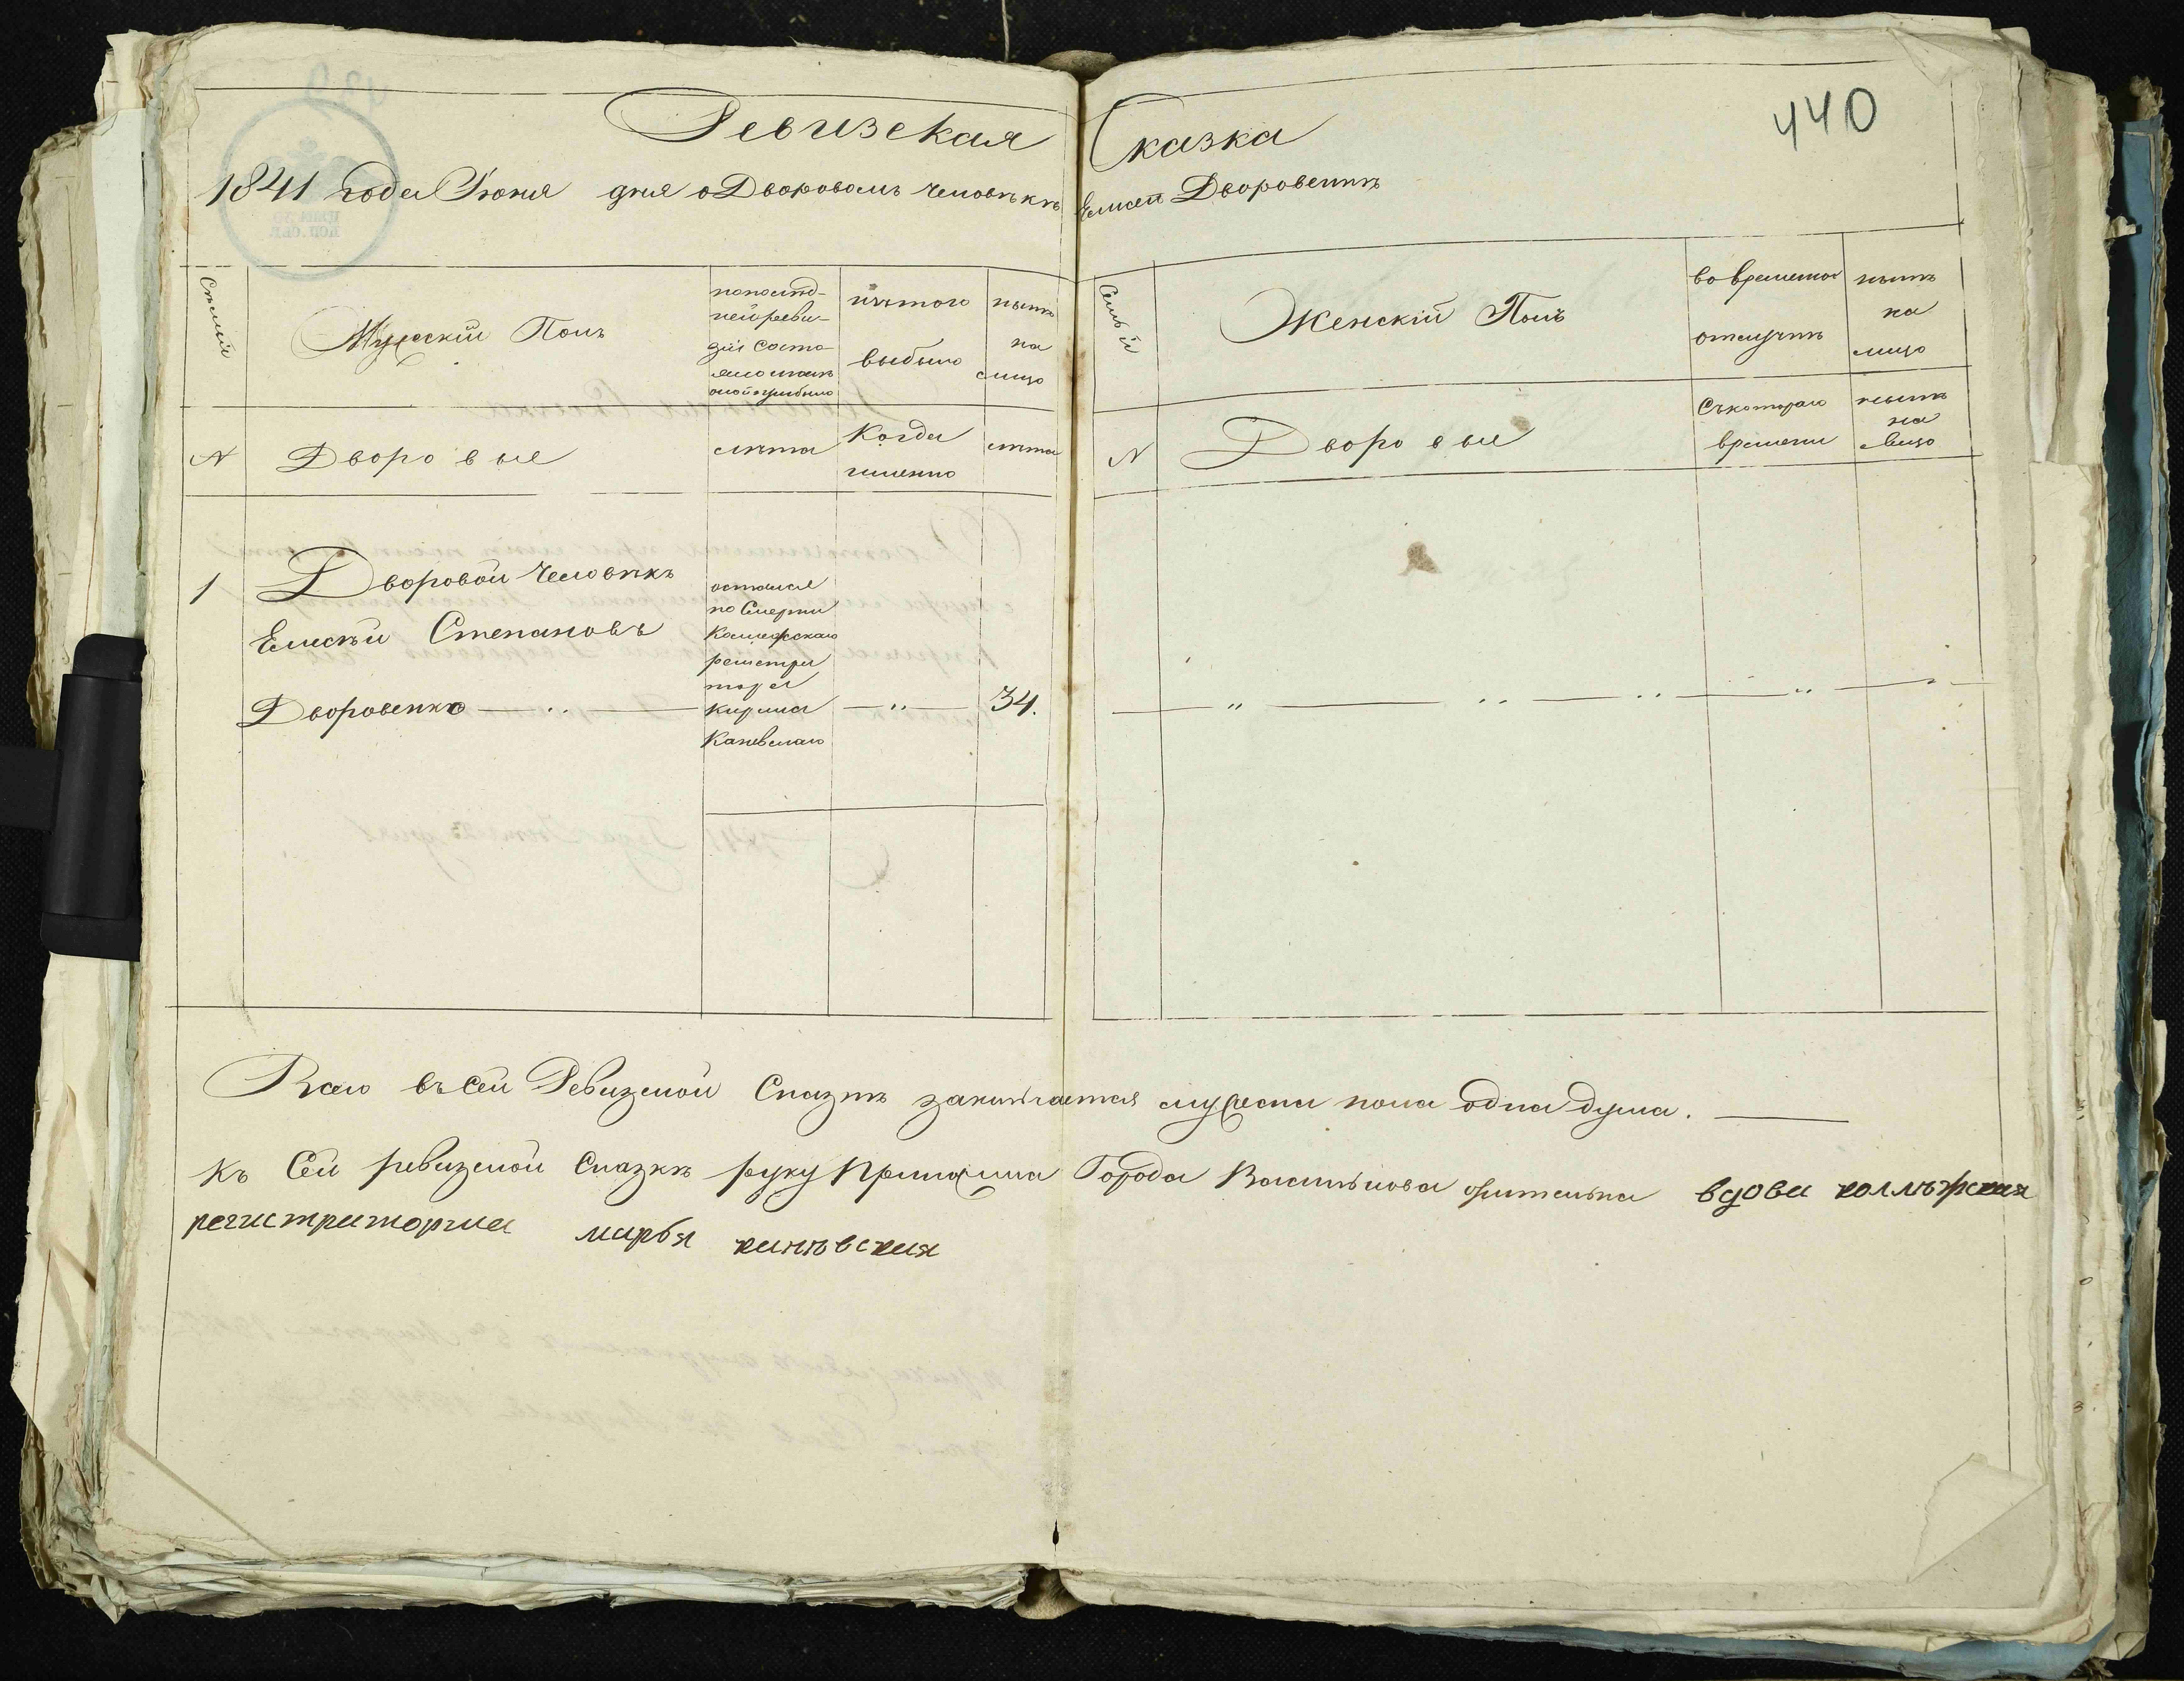 440
Ревизская Сказка
1841 года Июня дня о Дворовомъ человѣкѣ Елисеѣ Дворовенкѣ
Семьи
Мужескій Полъ
по послѣд-
ней реви-
зіи состо
яло и послѣ
оной прибыло
изъ того
выбыло
нынѣ
на
лицо
Семьи
Женскій Полъ
во временной
отлучкѣ
нынѣ
на
лицо
N
Дворовые
лѣта
Когда
именно
лѣта
N
Дворовые
Съ котораго
времени
нынѣ
на
лицо
1
Дворовой человѣкъ
Елисѣй Степановъ
Дворовенко
остался
по Смерти
Колежскаго
регистра
тора
Кирила
Каневскаго
34.
Всего въ сей Ревизской Сказкѣ заключается мужеска пола одна душа.
Къ Сей ревизской Сказкѣ руку приложила Города Василькова жителька вдова коллѣжская
регистраторша марья канѣвская